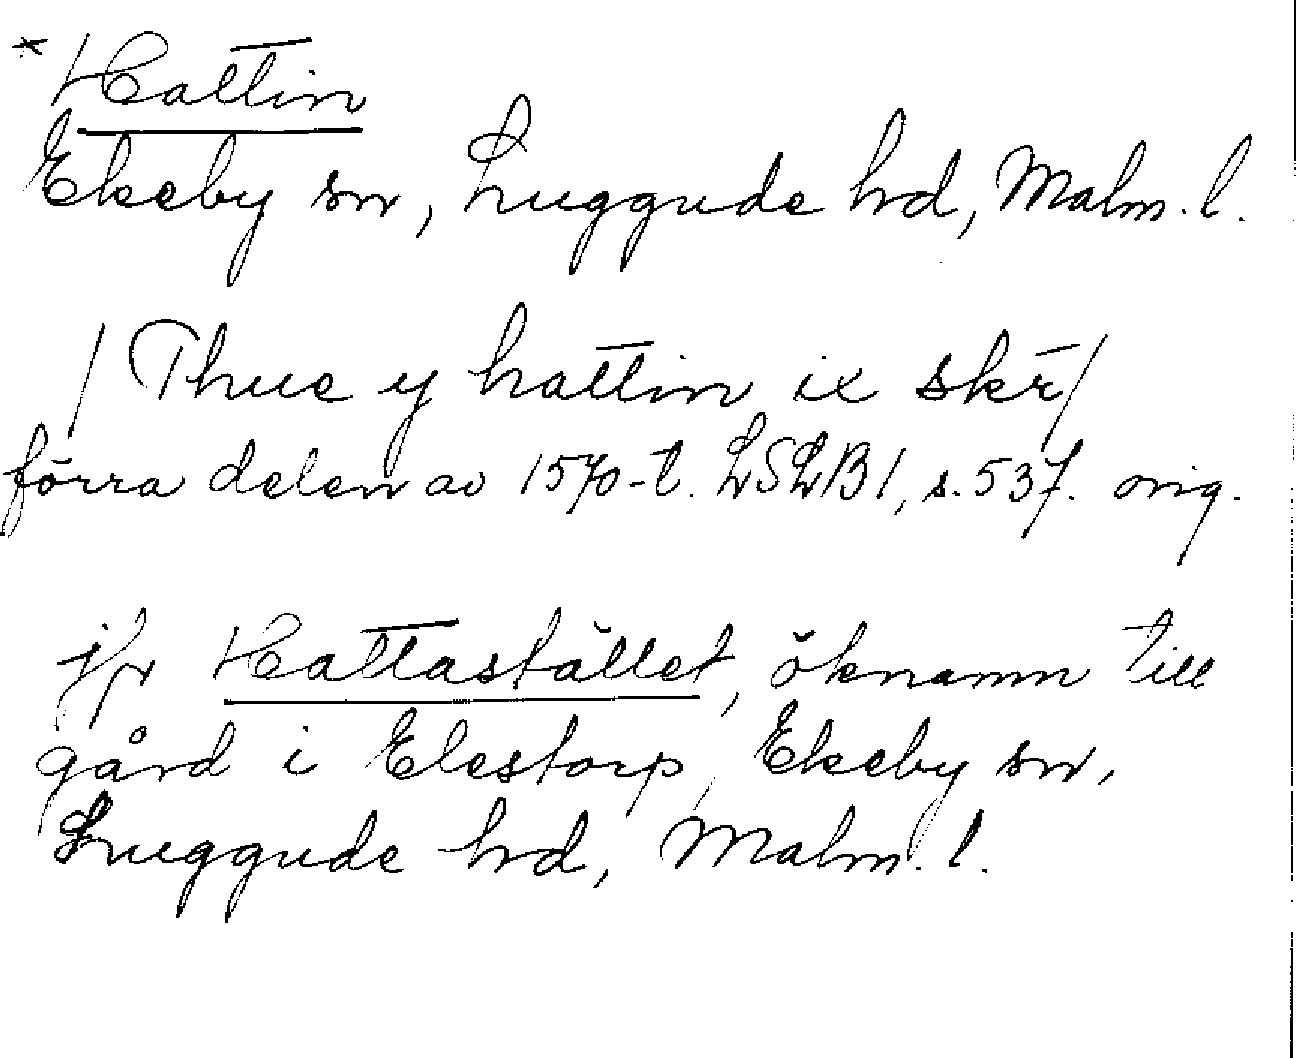 * Hattin
Ekeby sn, Luggude hd, Malm. l.
/ Thue y hattin ix skr̄ /
förra delen av 1570-t. LSLB 1, s. 537. orig.
jfr Hattastället, öknamn till
gård i Elestorp, Ekeby sn,
Luggude hd, Malm. l.